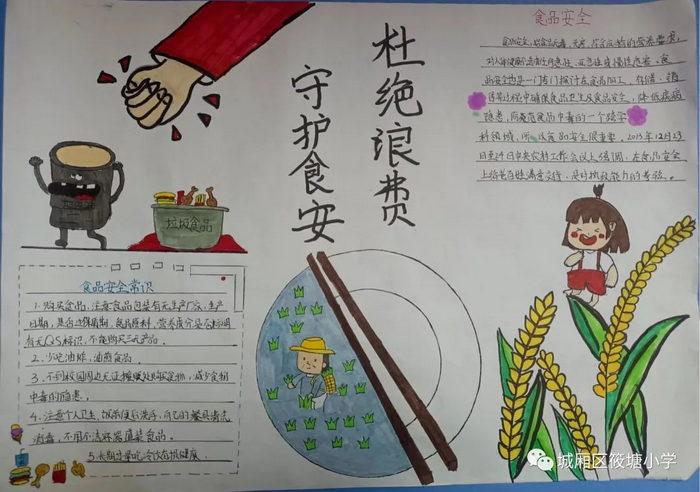 杜绝浪费
守护食安
食品安全
食品安全,指食品无毒、无害,符合应有的营养要求,
对人体健康不造成任何急性、亚急性或慢性危害。食
品安全也是一门专门探讨在食品加工、存储、销
售等过程中确保食品卫生及食品安全,降低疾病
隐患,防范食品中毒的一个跨学
科领域,所以食品安全很重要。2013年12月23
日至24日中央农村工作会议上强调,
垃圾食品
食品安全常识
1.购买食品,注意食品包装有无生产厂家,生产
日期,是否过保质期,食品原料,营养成分是否标明
有无QS标识,不能购买三无产品。
2.少吃油炸,油煎食品。
3.不到校园周边无证摊贩处购买食物,减少食物
中毒的隐患。
4.注意个人卫生,饭前便后洗手,自己的餐具清洗
消毒,不用不洁容器盛装食品。
5.
城厢区筱塘小学